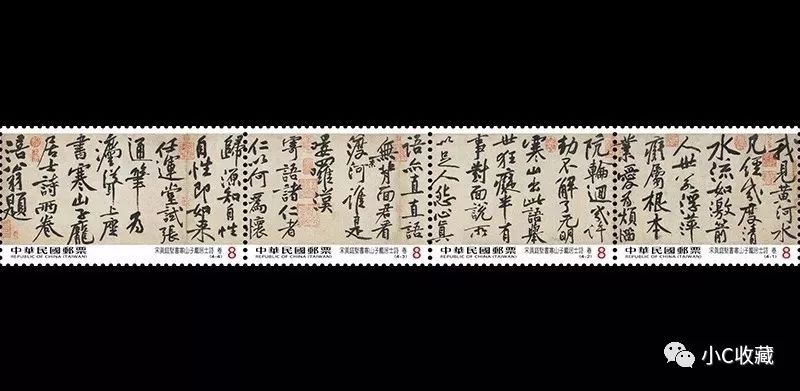 我見黃河水
凡經幾度清
水流如激箭
人世若浮萍
癡屬根本
業愛為煩惱
中華民國郵票
REPUBLIC OF CHINA (TAIWAN)
宋黃庭堅書寒山子龐居士詩 卷
(4-1)
8
輪迴幾許
劫不解了无明
寒山出此語舉
世狂癡半有
事對面說所
以足人怨心真
中華民國郵票
REPUBLIC OF CHINA (TAIWAN)
宋黃庭堅書寒山子龐居士詩 卷
(4-2)
8
語亦直直語
無背面君看
渡河誰是
嘍羅漢
寄語諸仁者
仁以何為懷
中華民國郵票
REPUBLIC OF CHINA (TAIWAN)
宋黃庭堅書寒山子龐居士詩 卷
(4-3)
8
歸源知自性
自性即如來
任運堂試張
通筆為
聳上座
書寒山子龐
居士詩兩卷
涪翁題
中華民國郵票
REPUBLIC OF CHINA (TAIWAN)
宋黃庭堅書寒山子龐居士詩 卷
(4-4)
8
小C收藏